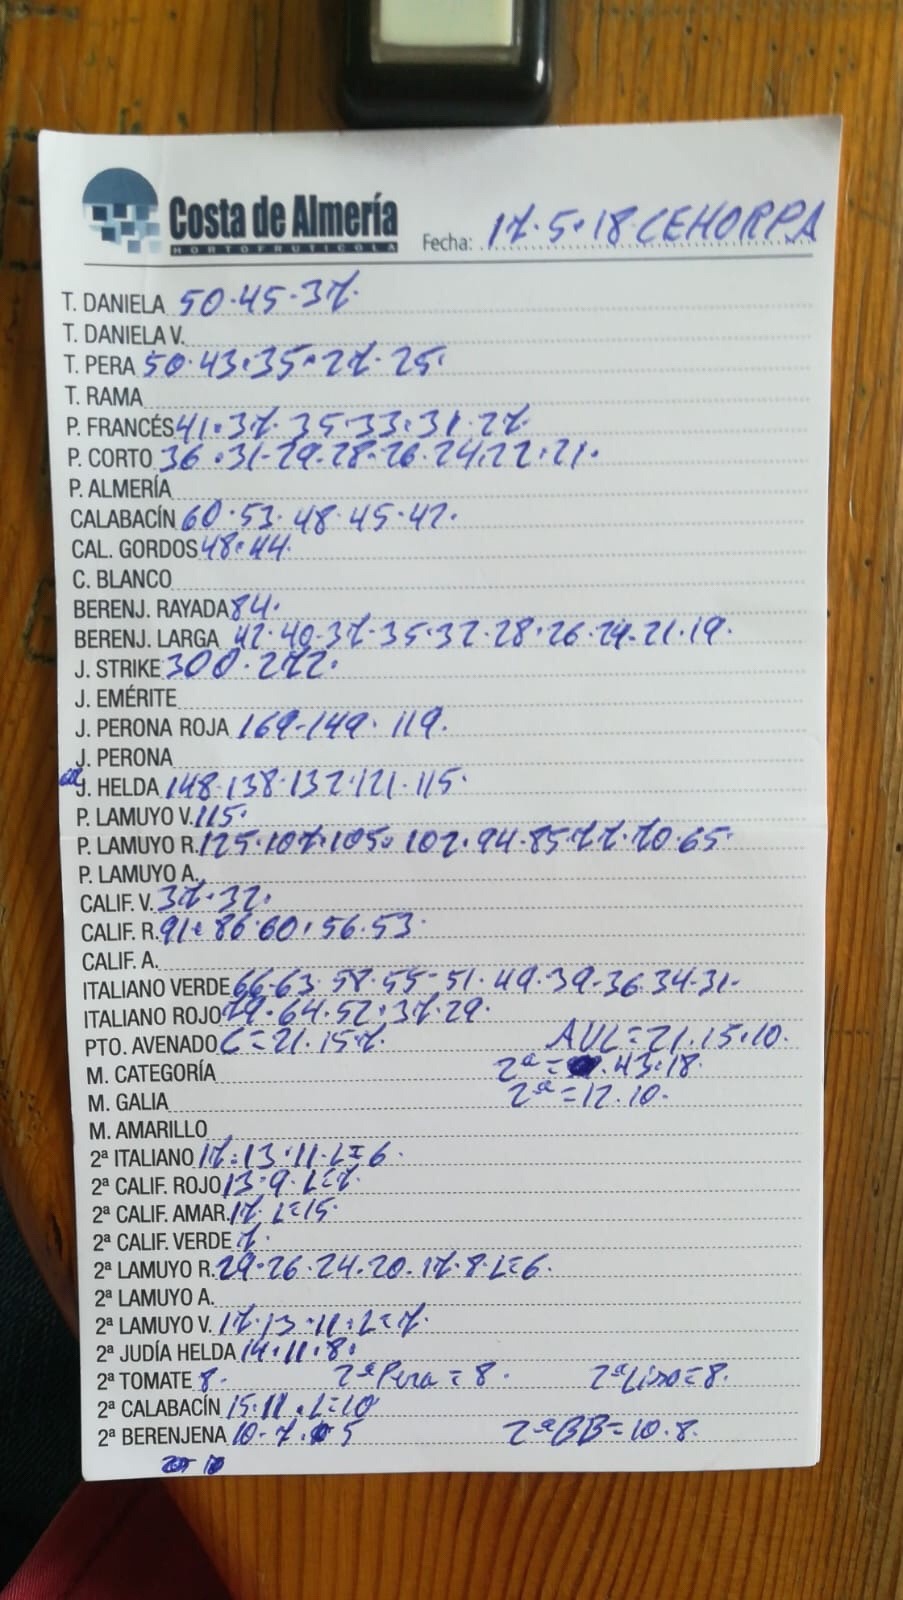 Costa de Almería
HORTOFRUTICOLA
Fecha: 17.5.18 CEHORPA
T. DANIELA 50.45.37.
T. DANIELA V.
T. PERA 50.43.35.27.25.
T. RAMA
P. FRANCÉS 41.37.35.33.31.27.
P. CORTO 36.31-29.28.26.24.22.21.
P. ALMERÍA
CALABACÍN 60.53.48.45.42.
CAL. GORDOS 48.44.
C. BLANCO
BERENJ. RAYADA 84.
BERENJ. LARGA 42.40.37.35.32.28.26.24.21.19.
J. STRIKE 300.272.
J. EMÉRITE
J. PERONA ROJA 169-149.119.
J. PERONA
J. HELDA 148.138.132.121.115.
P. LAMUYO V. 115.
P. LAMUYO R. 125.107.105.102.94.85.77.70.65.
P. LAMUYO A.
CALIF. V. 37.32.
CALIF. R. 91.86.60.56.53.
CALIF. A.
ITALIANO VERDE 66-63.58.55-51.49.39-36.34-31.
ITALIANO ROJO 79.64.52.37.29.
PTO. AVENADO C=21.15.7. AVL=21.15.10.
M. CATEGORÍA 2ª=.43.18.
M. GALIA 2ª=12.10.
M. AMARILLO
2ª ITALIANO 17.13.11.L=6.
2ª CALIF. ROJO 13.9.L=7.
2ª CALIF. AMAR. 17.L=15.
2ª CALIF. VERDE 7.
2ª LAMUYO R. 29.26.24.20.17.8.L=6.
2ª LAMUYO A.
2ª LAMUYO V. 17.13.11.L=7.
2ª JUDÍA HELDA 14.11.8.
2ª TOMATE 8. 2ª Pera=8. 2ª Liso=8.
2ª CALABACÍN 15.11.L=10
2ª BERENJENA 10-7.5 2ª BB=10.8.